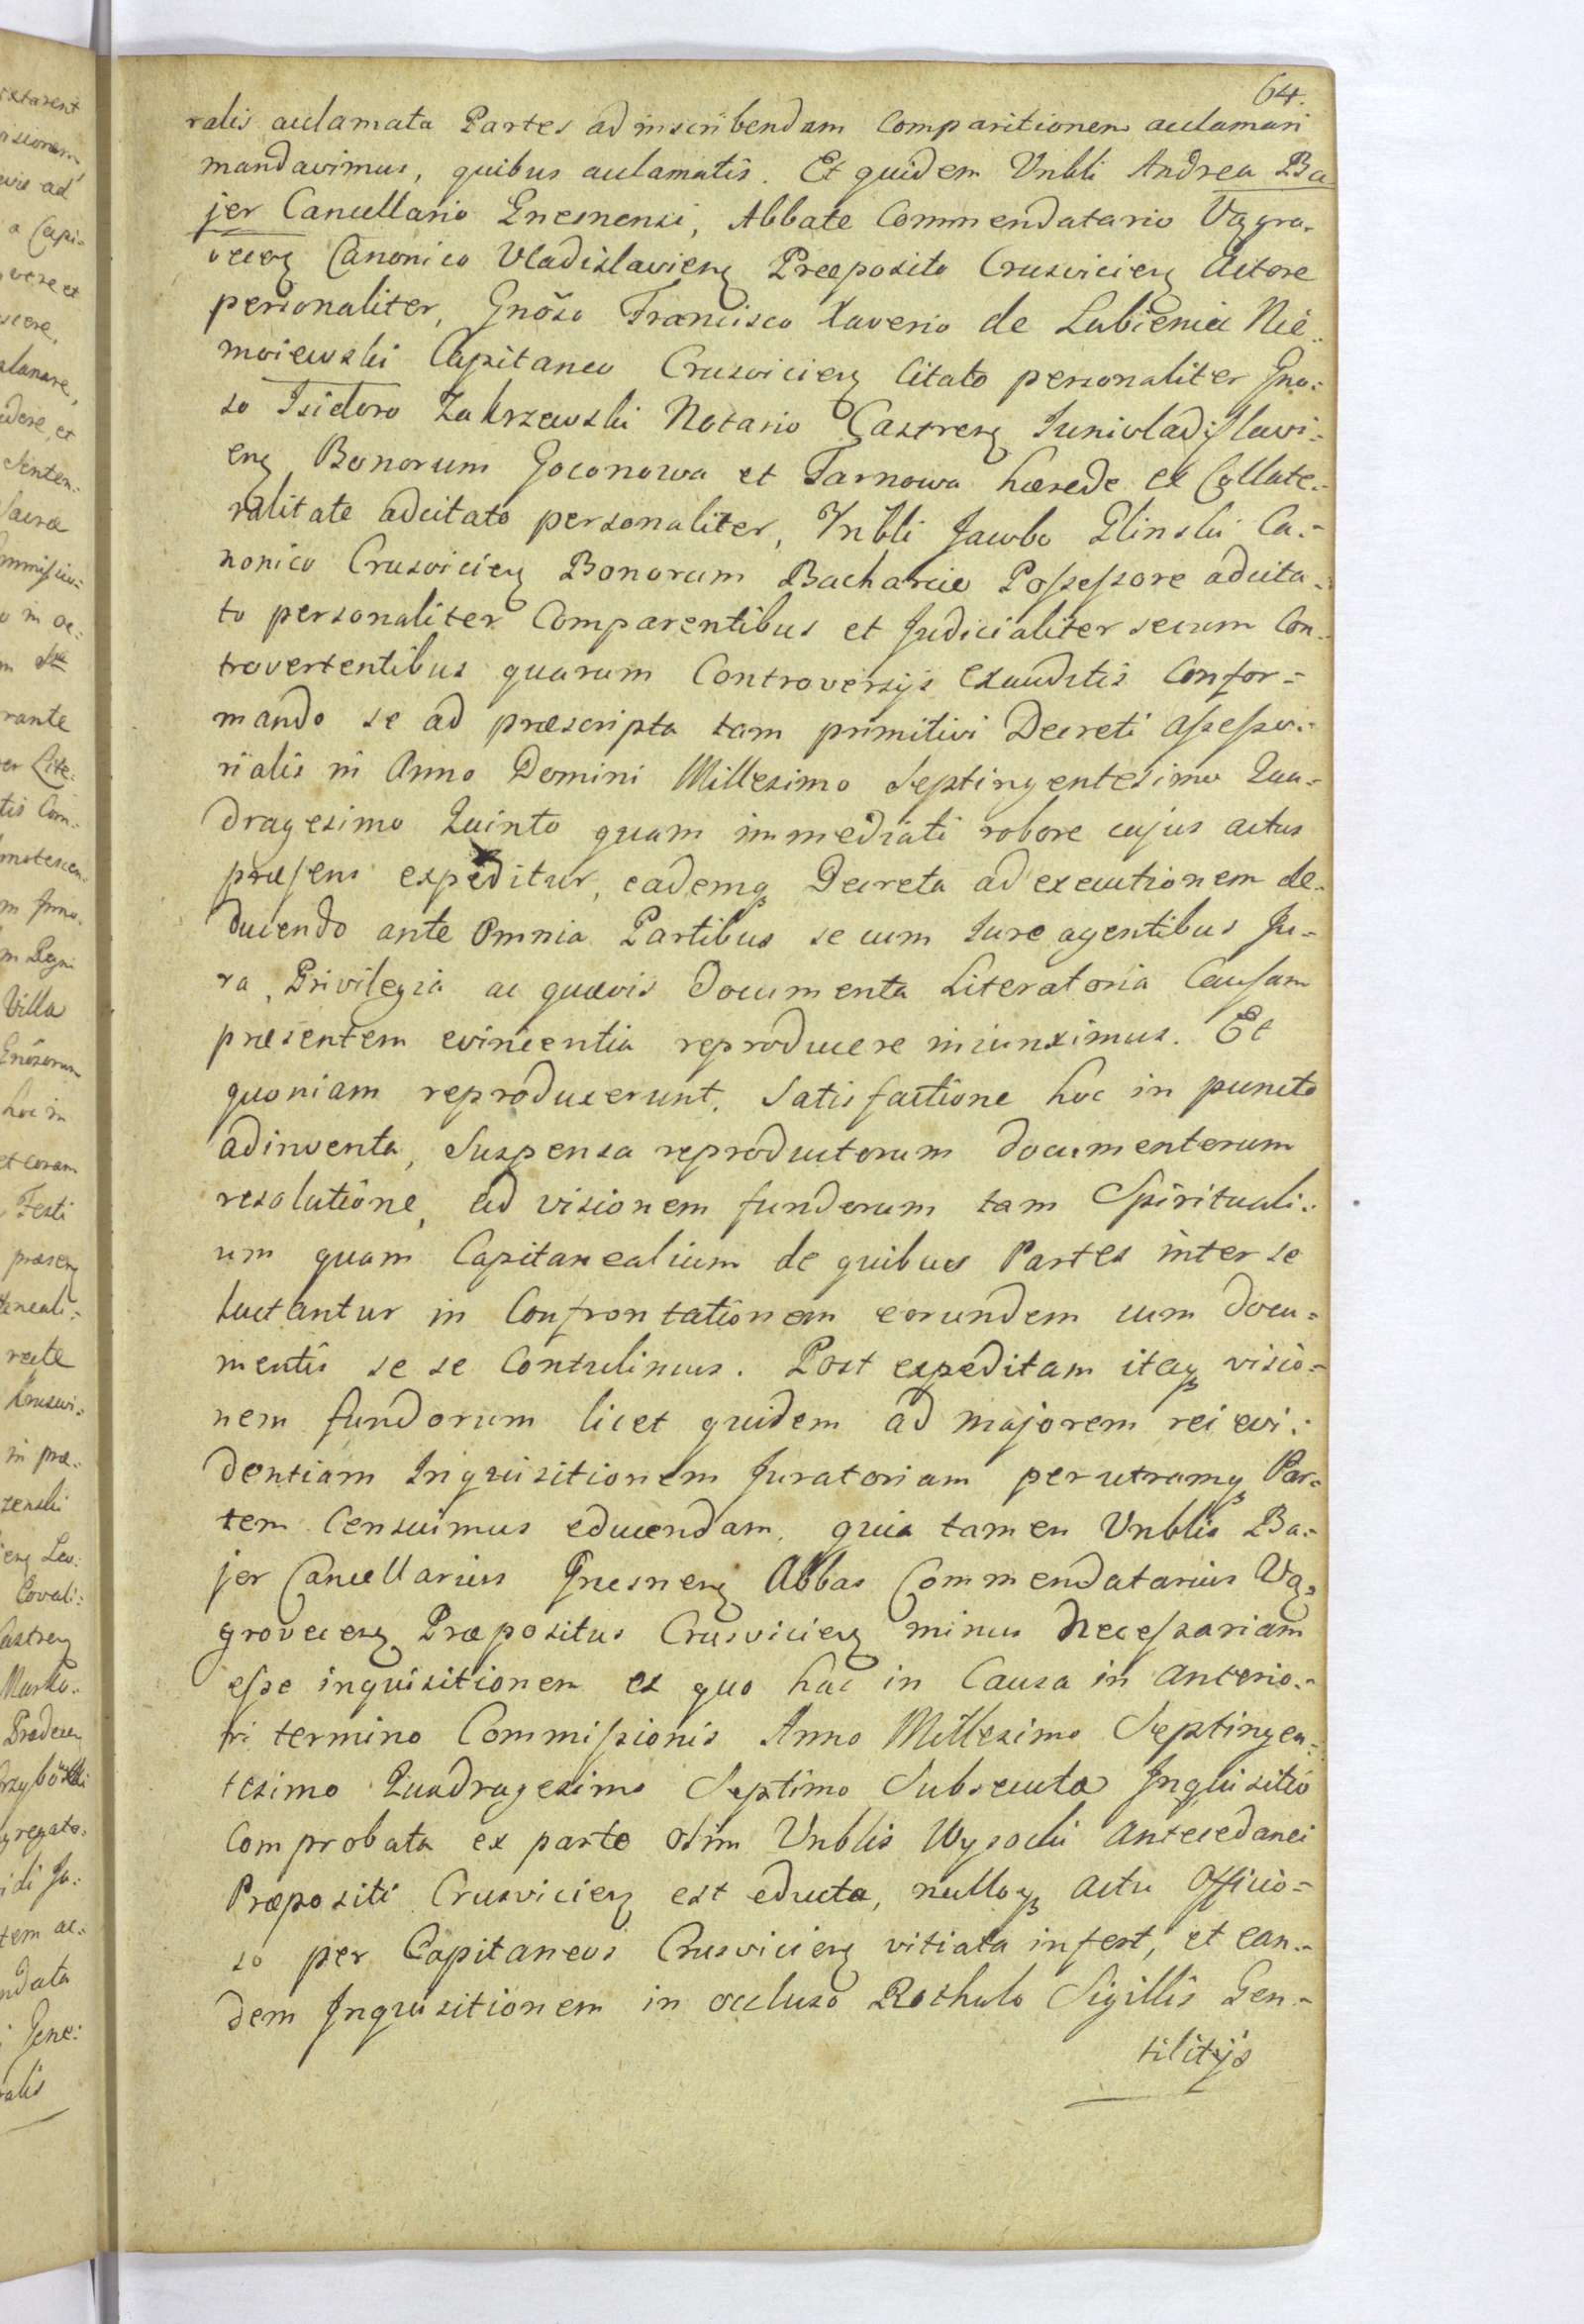 64.
ralis acclamata Partes ad inscribendam Comparitionem acclamari
mandavimus, quibus acclamatis. Et quidem Vnbli Andrea Ba
jer Cancellario Gnesnensi, Abbate Commendatario Vagro-
vecen Canonico Vladislavien Præposito Crusvicien Actore
personaliter, Gnoso Francisco Xaverio de Lubienia Nie-
moiewski Capitaneo Crusvicien Citato personaliter Gno:
so Isidoro Zakrzewski Notario Castren Junivladislavi:
en Bonorum Goconowa et Tarnowa hærede ex Collate:
ralitate adcitato personaliter, Vnbli Jacobo Glinski Ca:
nonico Crusvicien Bonorum Bacharcie Possessore adcita-
to personaliter Comparentibus et Judicialiter secum Con-
trovertentibus quarum Controversijs Exauditis Confor=
mando se ad præscripta tam primitivi Decreti Assesso:
rialis in Anno Domini Millesimo Septingentesimo Qua=
dragesimo Quinto quam immediati robore cujus actus
præsens expeditur, eademq Decreta ad executionem de-
ducendo ante Omnia Partibus secum Jure agentibus Ju=
ra, Privilegia ac quævis Documenta Literatoria Causam
præsentem evincentia reproducere iniunximus. Et
quoniam reproduxerunt, Satisfactione hoc in puncto
adinventa, Suspensa reproductorum Documentorum
resolutione, ad visionem fundorum tam Spirituali:
um quam Capitanealium de quibus Partes inter se
luctantur in Confrontationem eorundem cum Docu=
mentis se se Contulimus. Post expeditam itaq visio=
nem fundorum licet quidem ad majorem rei evi:
dentiam Inquisitionem Juratoriam per utramq Par=
tem Censuimus educendam, quia tamen Vnblis Ba:
jer Cancellarius Gnesnen Abbas Commendatarius Va-
grovecen Præpositus Crusvicien minus Necessariam
esse inquisitionem ex quo hac in Causa in anterio:
ri termino Commissionis Anno Millesimo Septingen-
tesimo Quadragesimo Septimo Subsecuta Inquisitio
Comprobata ex parte olim Vnblis Wysocki Antecedanei
Præpositi Crusvicien est educta, nulloq actu Officio=
so per Capitaneos Crusvicien vitiata infert, et ean:
dem Inquisitionem in occluso Rothulo Sigillis Gen-
tilitijs